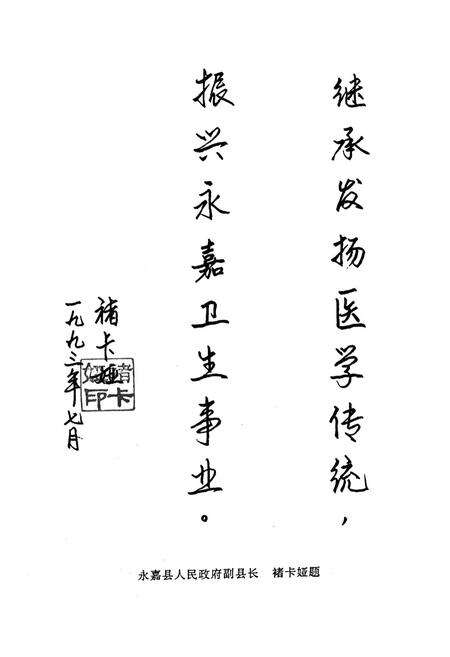 继承发扬医学传统，
振兴永嘉卫生事业。
褚卡娅
一九九三年七月
褚卡
娅印
永嘉县人民政府副县长 褚卡娅题